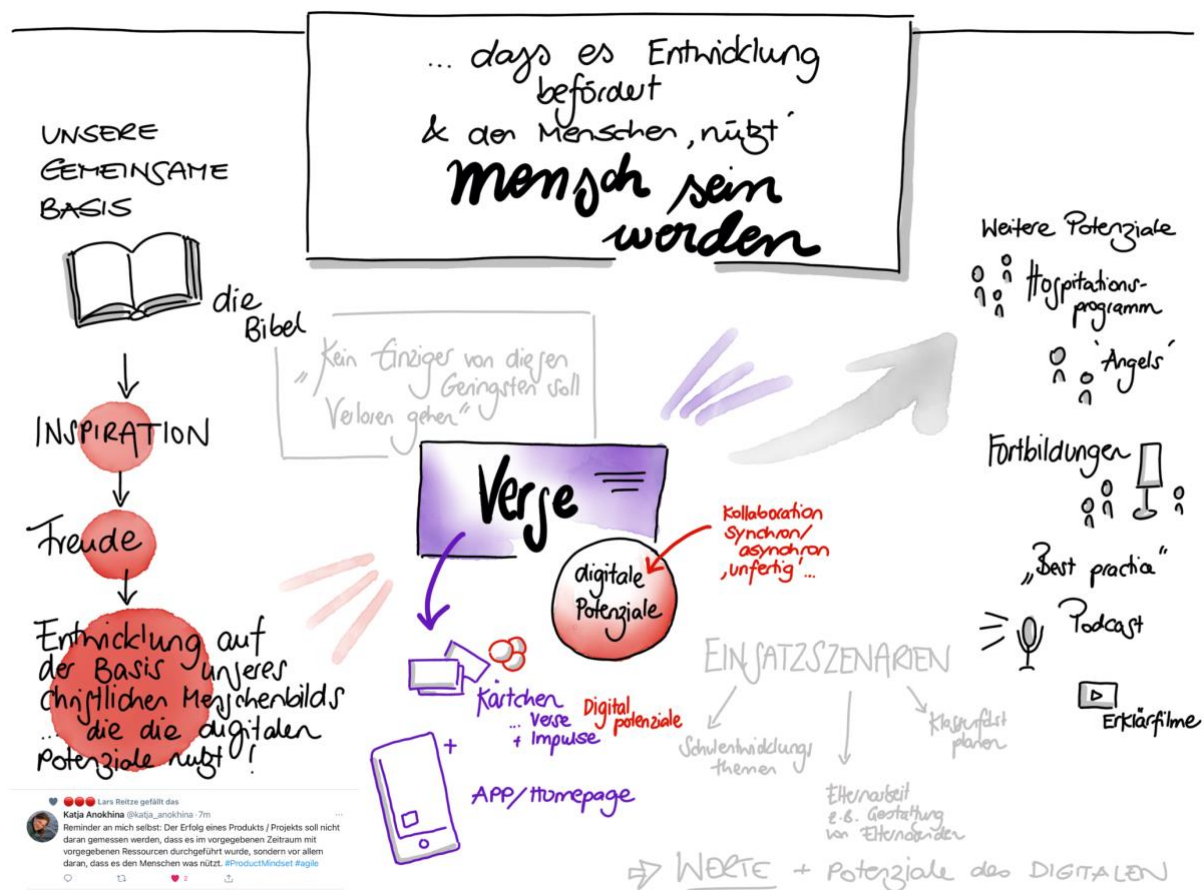 ... dass es Entwicklung
befördert
& den Menschen ‚nützt‘
mensch sein
werden
UNSERE
GEMEINSAME
BASIS
die
Bibel
INSPIRATION
Freude
Entwicklung auf
der Basis unseres
christlichen Menschenbilds
... die die digitalen
Potenziale nutzt!
„Kein Einziger von diesen
Geringsten soll
Verloren gehen“
Verse
digitale
Potenziale
Kollaboration
Synchron/
asynchron
‚unfertig‘...
Kärtchen
... Verse
+ Impulse
Digital
potenziale
+
APP/Homepage
EINSATZSZENARIEN
Schulentwicklungs
themen
Elternarbeit
z.B. Gestaltung
von Elternabenden
Klassenfahrt
planen
⇨ WERTE + Potenziale des DIGITALEN
Weitere Potenziale
Hospitations-
programm
‚Angels‘
Fortbildungen
„Best practice“
Podcast
Erklärfilme
Lars Reitze gefällt das
Katja Anokhina @katja_anokhina · 7m
Reminder an mich selbst: Der Erfolg eines Produkts / Projekts soll nicht
daran gemessen werden, dass es im vorgegebenen Zeitraum mit
vorgegebenen Ressourcen durchgeführt wurde, sondern vor allem
daran, dass es den Menschen was nützt. #ProductMindset #agile
2